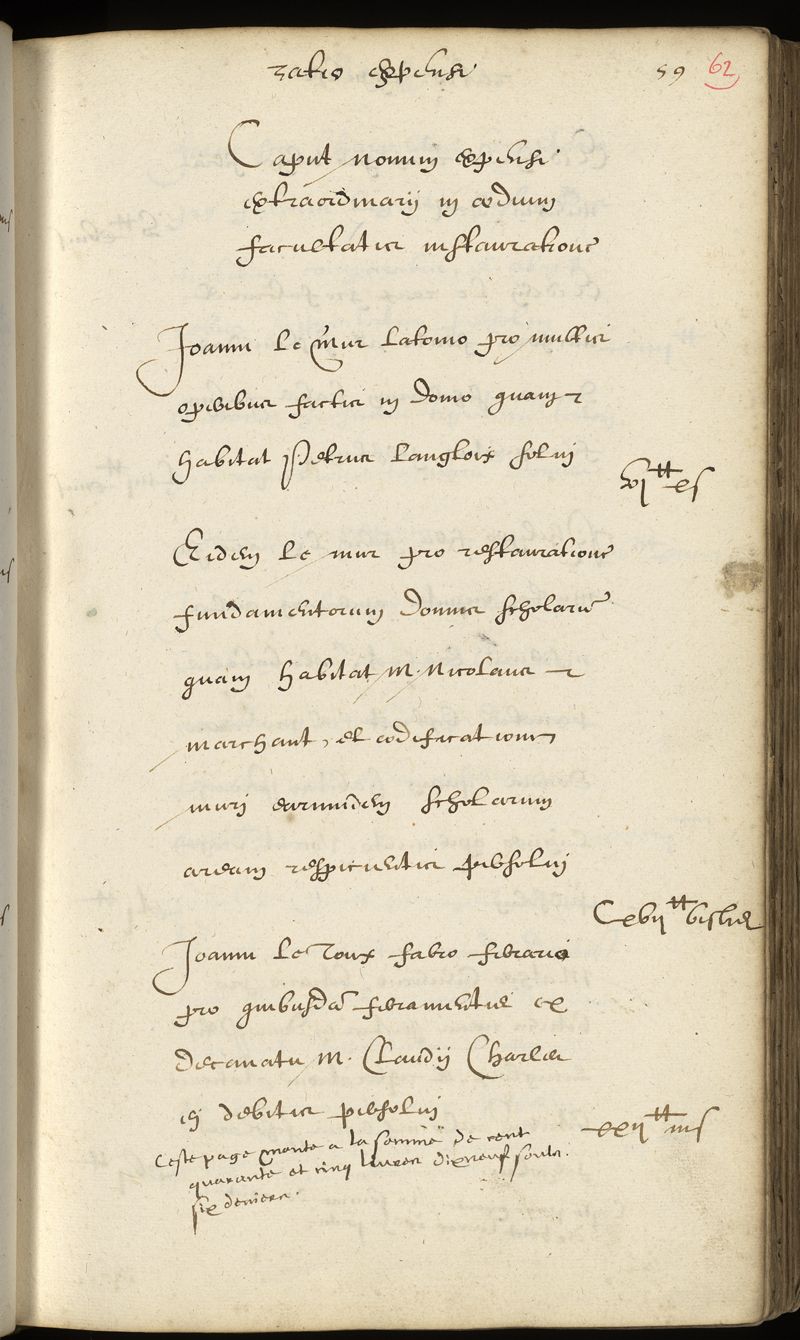 ratio expensi 59 62
Caput nonum expensi
extraordinarij in ædium
facultatis instauratione
Joanni Le Mur Latomo pro multis
operibus factis in domo quam
habitat Petrus Langlois solui
vj tt xs
Eidem Le mur pro restauratione
fundamentorum domus scholarū
quam habitat M. Nicolaus
marchant, et ædificatione
muri earumdem scholarum
aream respicientis persolui
Cxvij tt
Joanni Le Roux fabro ferrario
pro quibusdā ferramentis ex
decanatu M. Claudij Charles
ej debitis persolui
xxij tt iiis
Ceste page monte a la somme de cent
quarante et cinq livres dixneuf soulz
six deniers.